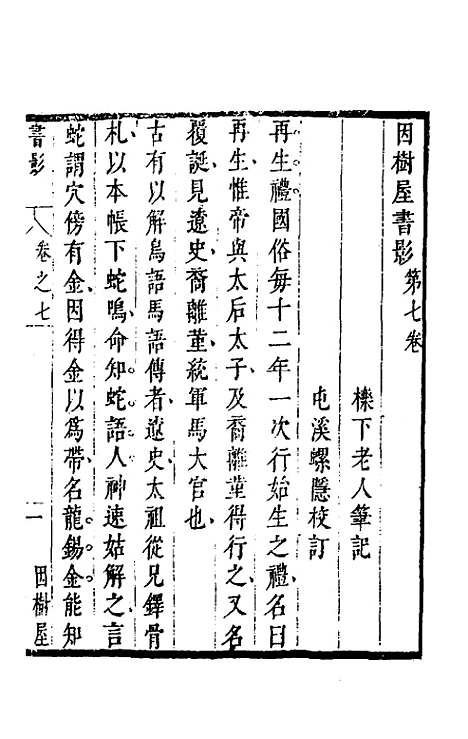 因樹屋書影第七卷
櫟下老人筆記
屯溪螺隱校訂
再生禮國俗每十二年一次行始生之禮名曰
再生惟帝與太后太子及裔離堇得行之又名
覆誕見遼史裔離堇統軍馬大官也
古有以解鳥語馬語傳者遼史太祖從兄鐸骨
札以本帳下蛇鳴命知蛇語人神速姑解之言
蛇謂穴傍有金因得金以為帶名龍錫金能知
書影
卷之七
一
因樹屋